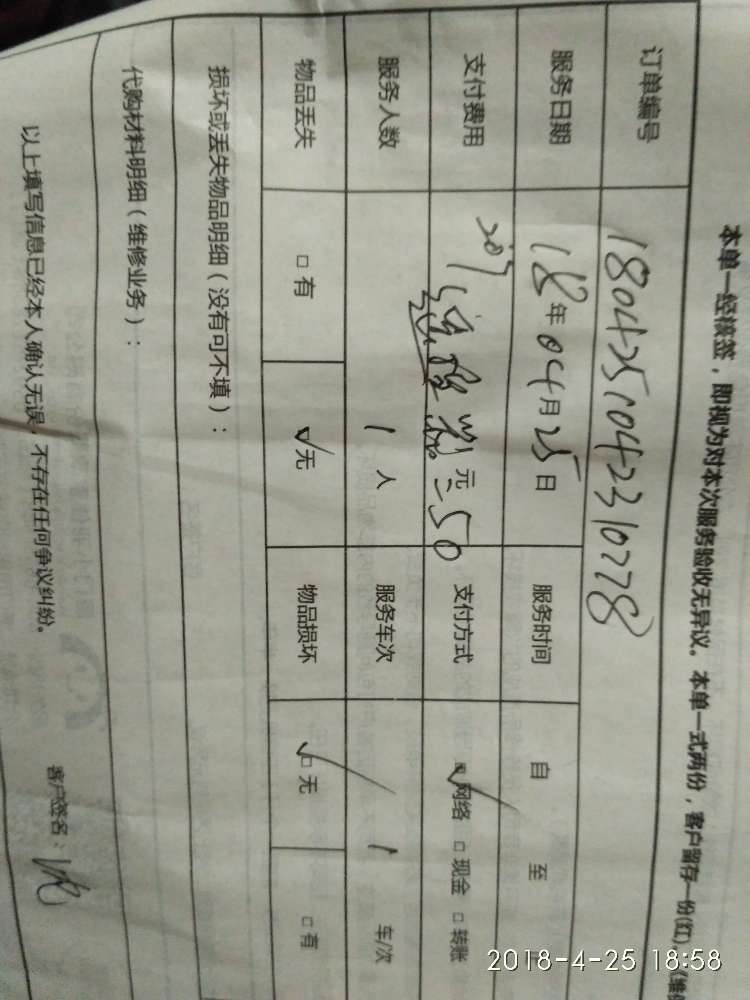 本单一经核签，即视为对本次服务验收无异议。本单一式两份，客户留存一份(红)，
订单编号 1804251042310278
服务日期 18年04月25日 服务时间 自 至
支付费用 元 50 支付方式 ☑网络 □现金 □转账
服务人数 1人 服务车次 1 车/次
物品丢失 □有 ☑无 物品损坏 ☑无 □有
损坏或丢失物品明细（没有可不填）：
代购材料明细（维修业务）：
以上填写信息已经本人确认无误，不存在任何争议纠纷。
客户签名：
2018-4-25 18:58